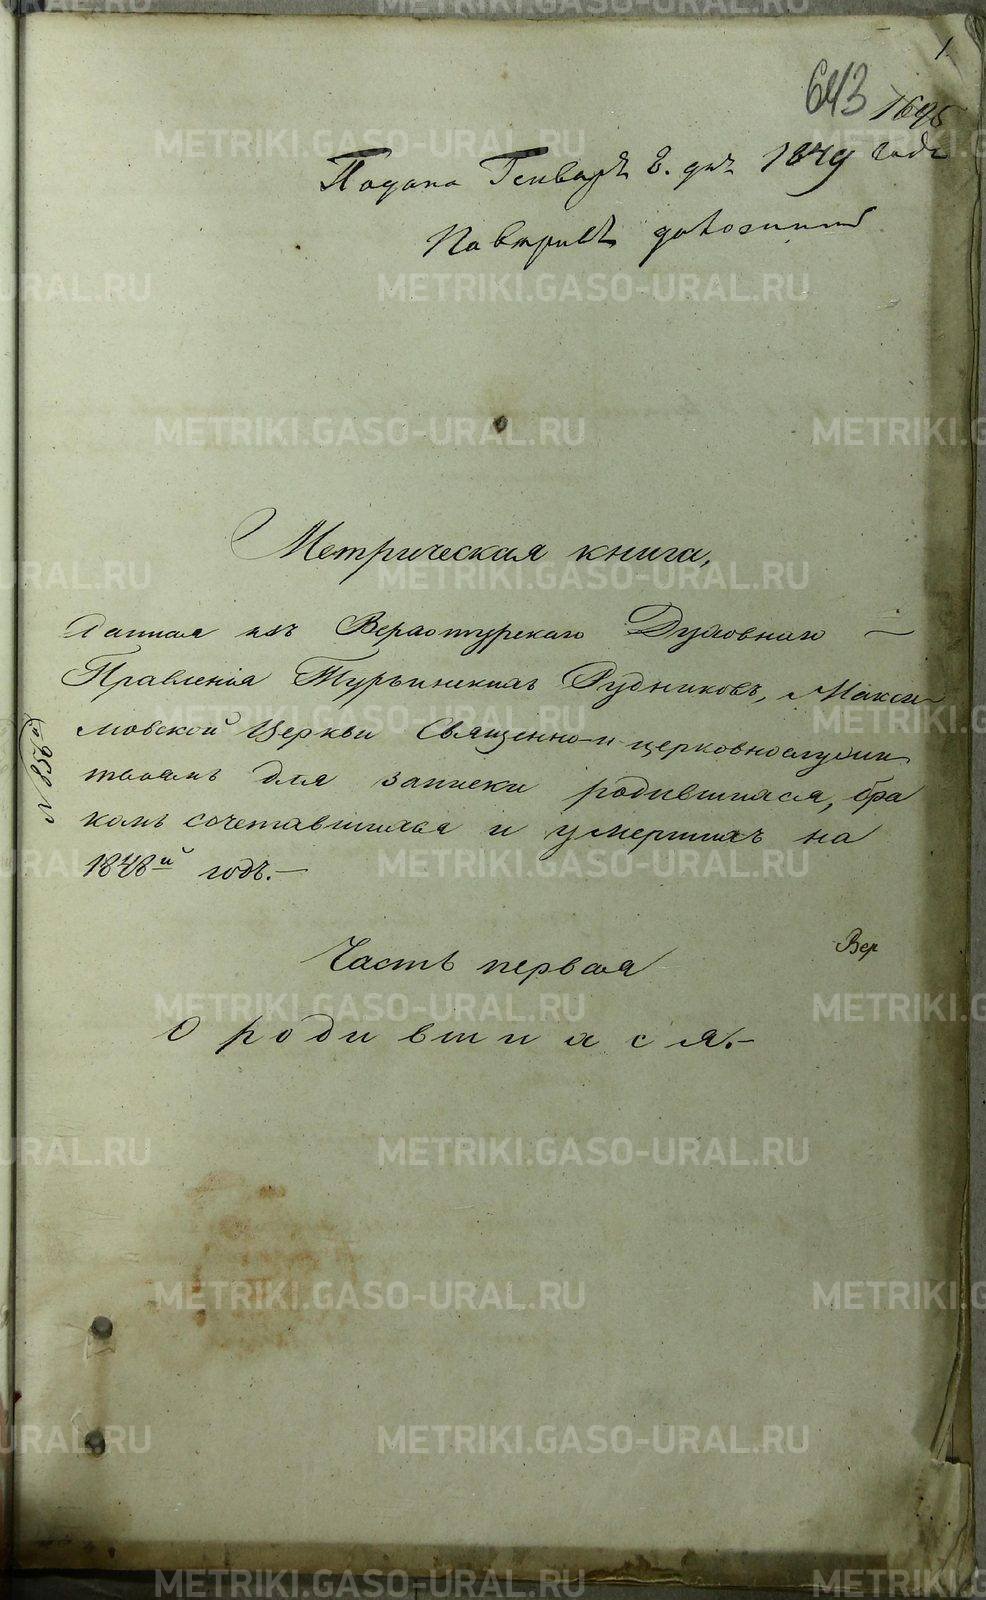 1.
643
1695
Подана Генваря 8. дня 1849 года
METRIKI.GASO-URAL.RU
Метрическая книга,
Данная изъ Верхотурскаго Духовнаго —
Правленія Турьинскихъ Рудниковъ, Макси-
мовской Церкви Священно-и церковнослужи
телямъ для записки родившихся, бра
комъ сочетавшихся и умершихъ на
1848й годъ.—
Часть первая
Вер
О родившихся.—